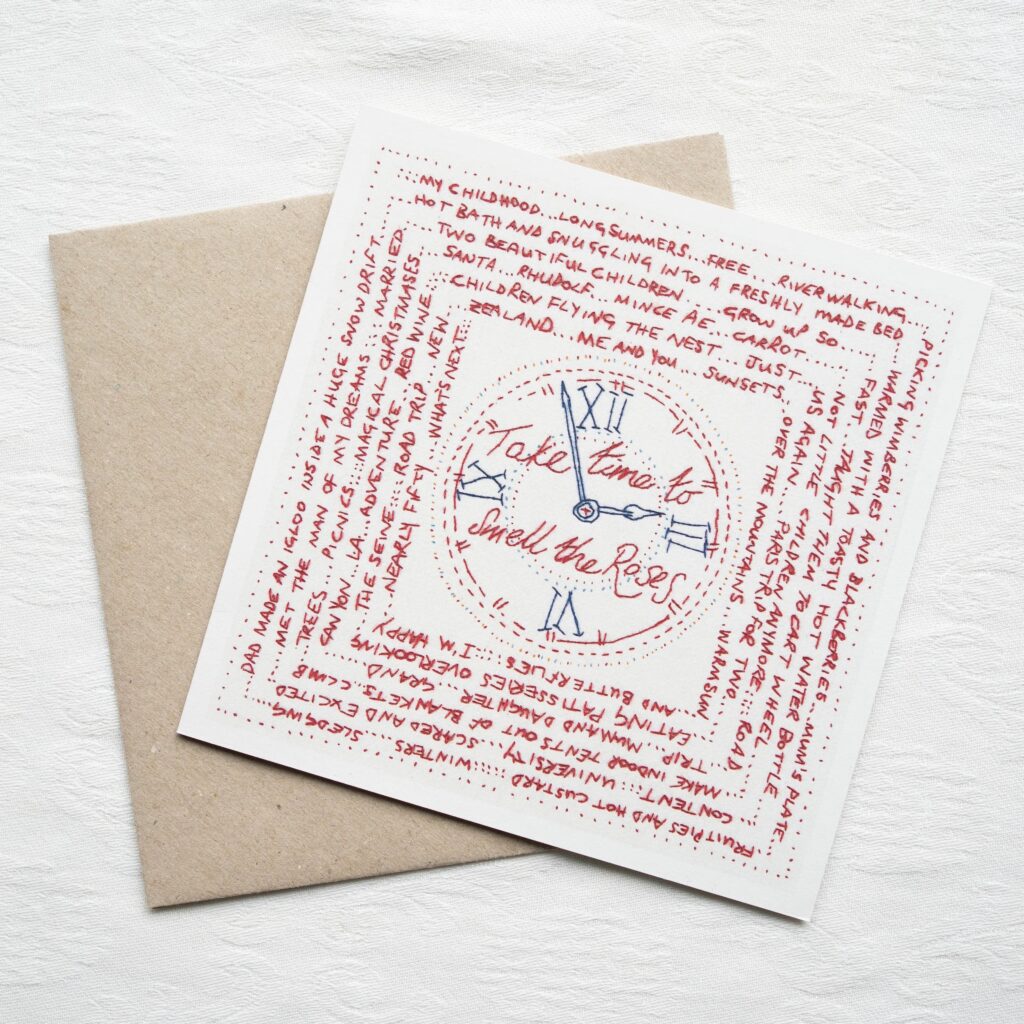 MY CHILDHOOD...LONG SUMMERS...FREE...RIVER WALKING...
PICKING WIMBERRIES AND BLACKBERRIES...MUM'S PLATE
FRUIT PIES AND HOT CUSTARD
WINTERS.....SLEDGING
DAD MADE AN IGLOO INSIDE A HUGE SNOW DRIFT
HOT BATH AND SNUGGLING INTO A FRESHLY MADE BED
WARMED WITH A TOASTY HOT WATER BOTTLE
CONTENT....UNIVERSITY...SCARED AND EXCITED
MET THE MAN OF MY DREAMS....MARRIED
TWO BEAUTIFUL CHILDREN...GROW UP SO
FAST...TAUGHT THEM TO CART WHEEL
MAKE INDOOR TENTS OUT OF BLANKETS..CLIMB
TREES...PICNICS...MAGICAL CHRISTMASES.
SANTA...RHUDOLF...MINCE AE..CARROT....
NOT LITTLE CHILDREN ANYMORE....ROAD
TRIP...MUM AND DAUGHTER...GRAND
CANYON. LA..ADVENTURE. RED WINE...
CHILDREN FLYING THE NEST...JUST
US AGAIN...PARIS TRIP FOR TWO
EATING PATISSERIES OVERLOOKING
THE SEINE...ROAD TRIP. NEW
ZEALAND...ME AND YOU...SUNSETS
OVER THE MOUNTAINS WARM SUN
AND BUTTERFLIES...I'M HAPPY
NEARLY FIFTY...WHAT'S NEXT...
XII
Take time to
IX
III
Smell the Roses
VI